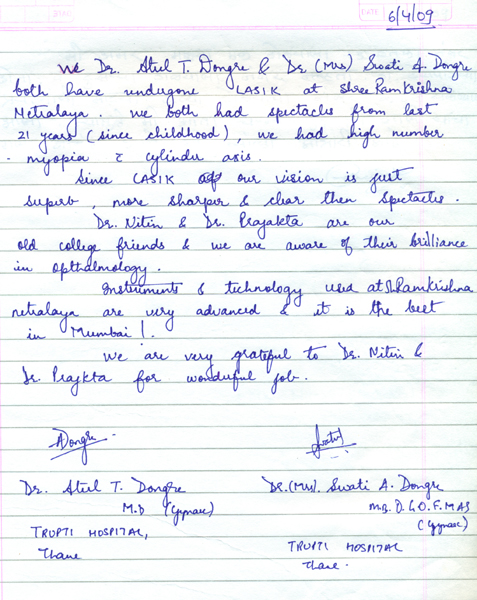 6/4/09
We Dr. Atul T. Dongre & Dr (Mrs) Swati A. Dongre
both have undergone LASIK at Shree Ramkrishna
Netralaya. We both had spectacles from last
21 years (since childhood), we had high number
myopia c̄ cylinder axis.
Since LASIK our vision is just
superb, more sharper & clear then spectacles.
Dr. Nitin & Dr. Prajakta are our
old college friends & we are aware of their brilliance
in opthalmology.
Instruments & technology used at Sh Ramkrishna
netralaya are very advanced & it is the best
in Mumbai!.
We are very grateful to Dr. Nitin &
Dr. Prajkta for wonderful job.
ADongre
Dr. Atul T. Dongre
M.D (Gynaec)
TRUPTI HOSPITAL,
Thane
Dr. (Mrs). Swati A. Dongre
M.B. D.G.O. F.MAS
(Gynaec)
TRUPTI HOSPITAL
Thane.